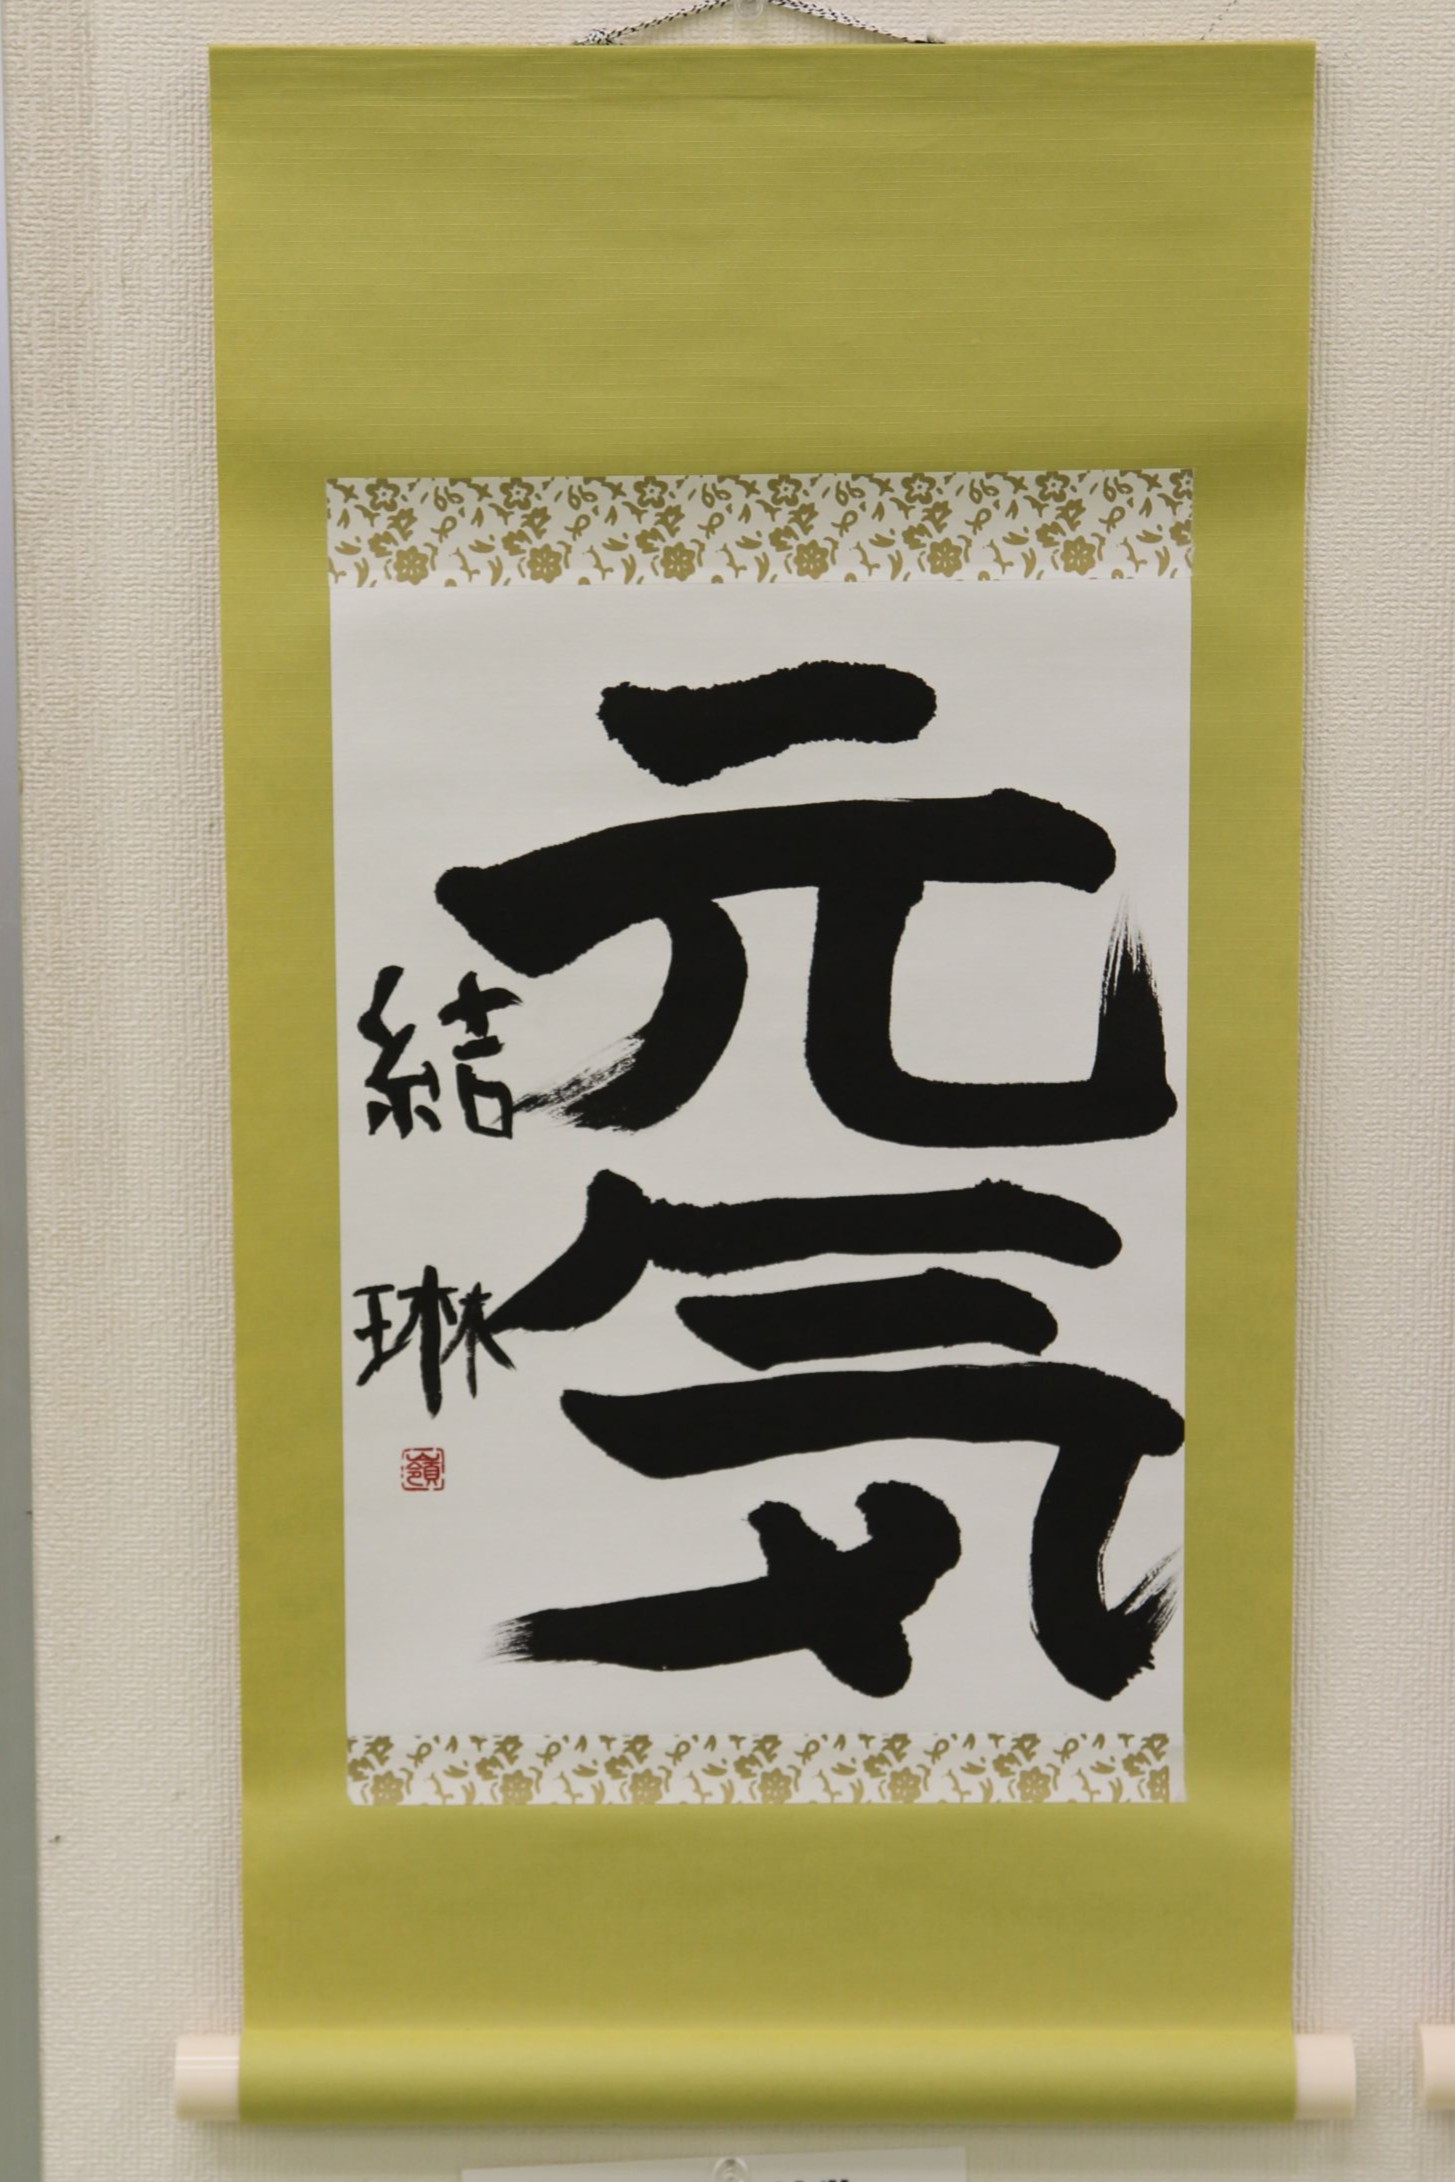 元気
結琳
嶺